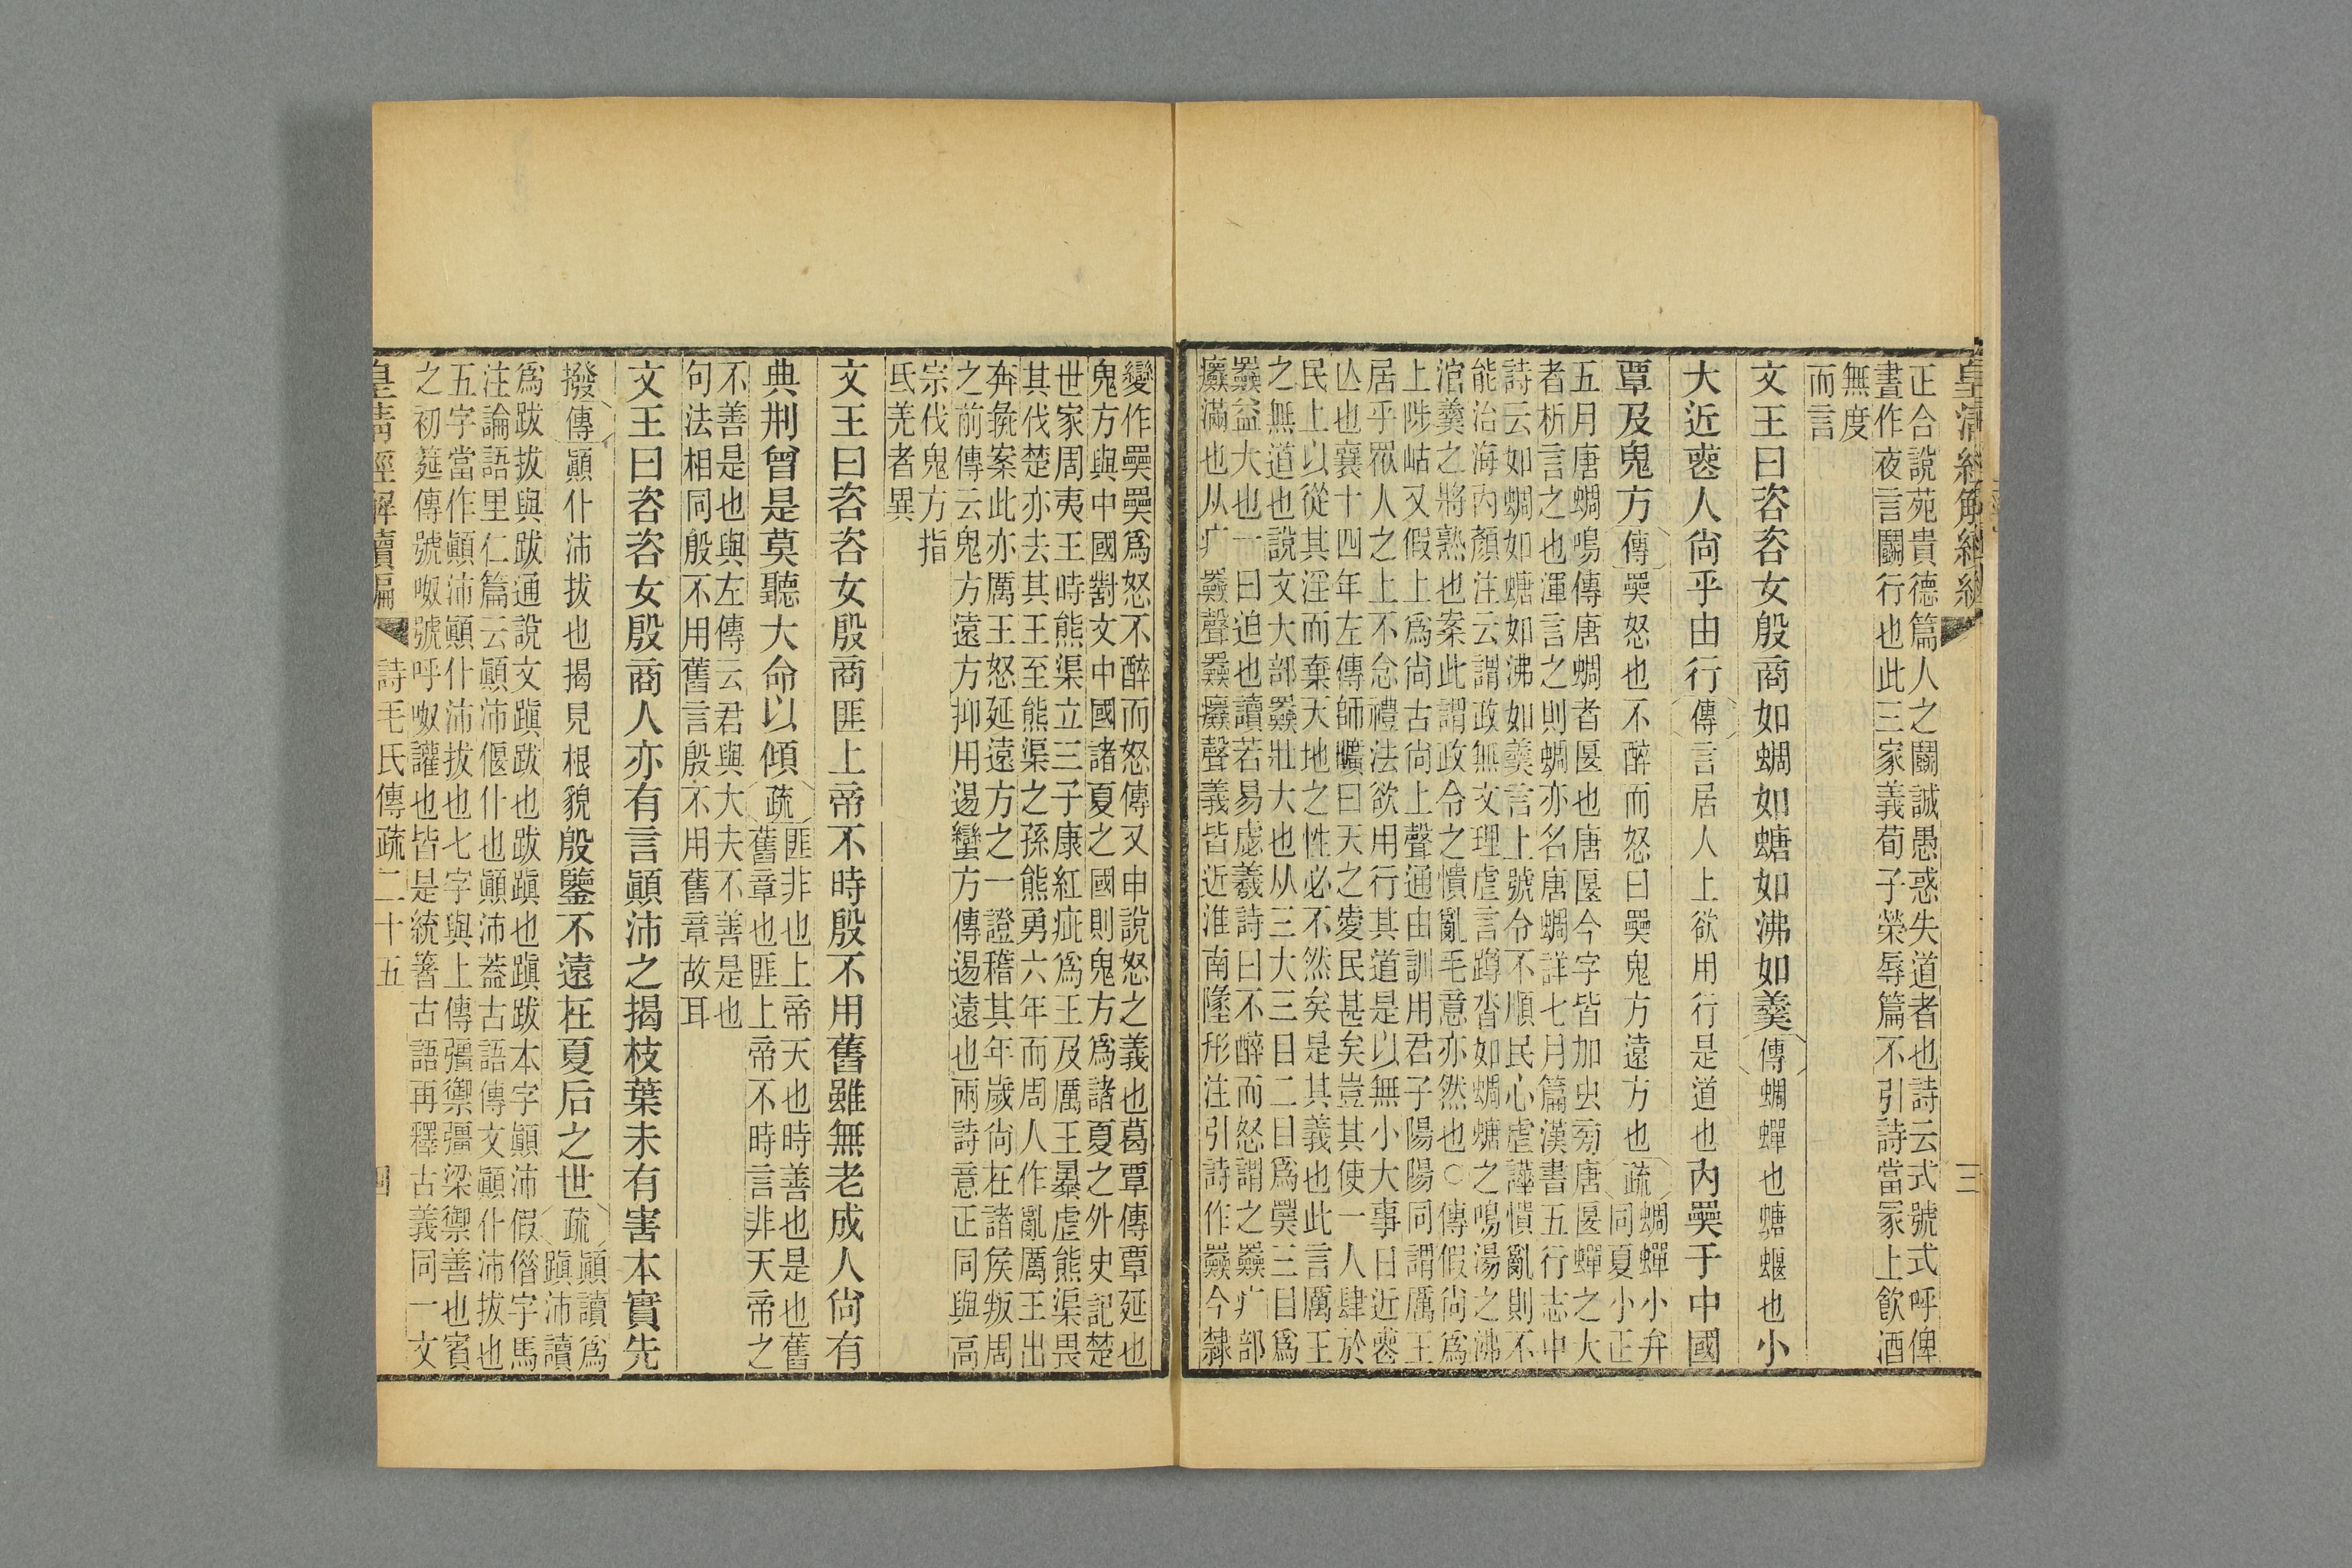 皇清經解續編
三
正合說苑貴德篇人之鬭誠愚惑失道者也詩云式號式呼俾
晝作夜言鬭行也此三家義荀子榮辱篇不引詩當冡上飲酒
無度
而言
文王曰咨咨女殷商如蜩如螗如沸如羹傳蜩蟬也螗蝘也小
大近喪人尙乎由行傳言居人上欲用行是道也內奰于中國
覃及鬼方傳奰怒也不醉而怒曰奰鬼方遠方也疏蜩蟬小弁
同夏小正
五月唐蜩鳴傳唐蜩者匽也唐匽今字皆加虫旁唐匽蟬之大
者析言之也渾言之則蜩亦名唐蜩詳七月篇漢書五行志中
詩云如蜩如螗如沸如羹言上號令不順民心虛譁憒亂則不
能治海內顏注云謂政無文理虛言蹲沓如蜩螗之鳴湯之沸
涫羹之將熟也案此謂政令之憒亂毛意亦然也○傳假尙爲
上陟岵又假上爲尙古尙上聲通由訓用君子陽陽同謂厲王
居乎眾人之上不念禮法欲用行其道是以無小大事曰近喪
亾也襄十四年左傳師曠曰天之愛民甚矣豈其使一人肆於
民上以從其淫而棄天地之性必不然矣是其義也此言厲王
之無道也說文大部奰壯大也从三大三目二目爲䀠三目爲
奰益大也一曰迫也讀若易虙羲詩曰不醉而怒謂之奰疒部
癳滿也从疒奰聲奰癳聲義皆近淮南墬形注引詩作奰今隸
變作奰奰爲怒不醉而怒傳又申說怒之義也葛覃傳覃延也
鬼方與中國對文中國諸夏之國則鬼方爲諸夏之外史記楚
世家周夷王時熊渠立三子康紅疵爲王及厲王暴虐熊渠畏
其伐楚亦去其王至熊渠之孫熊勇六年而周人作亂厲王出
奔彘案此亦厲王怒延遠方之一證稽其年歲尙在諸侯叛周
之前傳云鬼方遠方抑用逷蠻方傳逷遠也兩詩意正同與高
宗伐鬼方指
氐羌者異
文王曰咨咨女殷商匪上帝不時殷不用舊雖無老成人尙有
典刑曾是莫聽大命以傾疏匪非也上帝天也時善也是也舊
舊章也匪上帝不時言非天帝之
不善是也與左傳云君與大夫不善是也
句法相同殷不用舊言殷不用舊章故耳
文王曰咨咨女殷商人亦有言顚沛之揭枝葉未有害本實先
撥傳顚仆沛拔也揭見根貌殷鑒不遠在夏后之世疏顚讀爲
蹎沛讀
爲跋拔與跋通說文蹎跋也跋蹎也蹎跋本字顚沛假偕字馬
注論語里仁篇云顚沛偃仆也顚沛葢古語傳文顚仆沛拔也
五字當作顚沛顚仆沛拔也七字與上傳彊禦彊梁禦善也賓
之初筵傳號呶號呼呶讙也皆是統籑古語再釋古義同一文
皇清經解續編
詩毛氏傳疏二十五
四